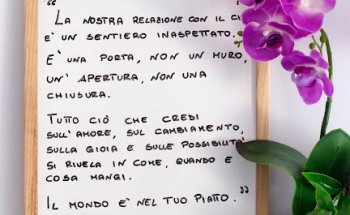 "LA NOSTRA RELAZIONE CON IL
E' UN SENTIERO INASPETTATO.
E' UNA PORTA, NON UN MURO,
UN' APERTURA, NON UNA
CHIUSURA.
TUTTO CIÒ CHE CREDI
SULL'AMORE, SUL CAMBIAMENTO,
SULLA GIOIA E SULLE POSSIBILITA'
SI RIVELA IN COME, QUANDO E
COSA MANGI.
IL MONDO E' NEL TUO PIATTO."